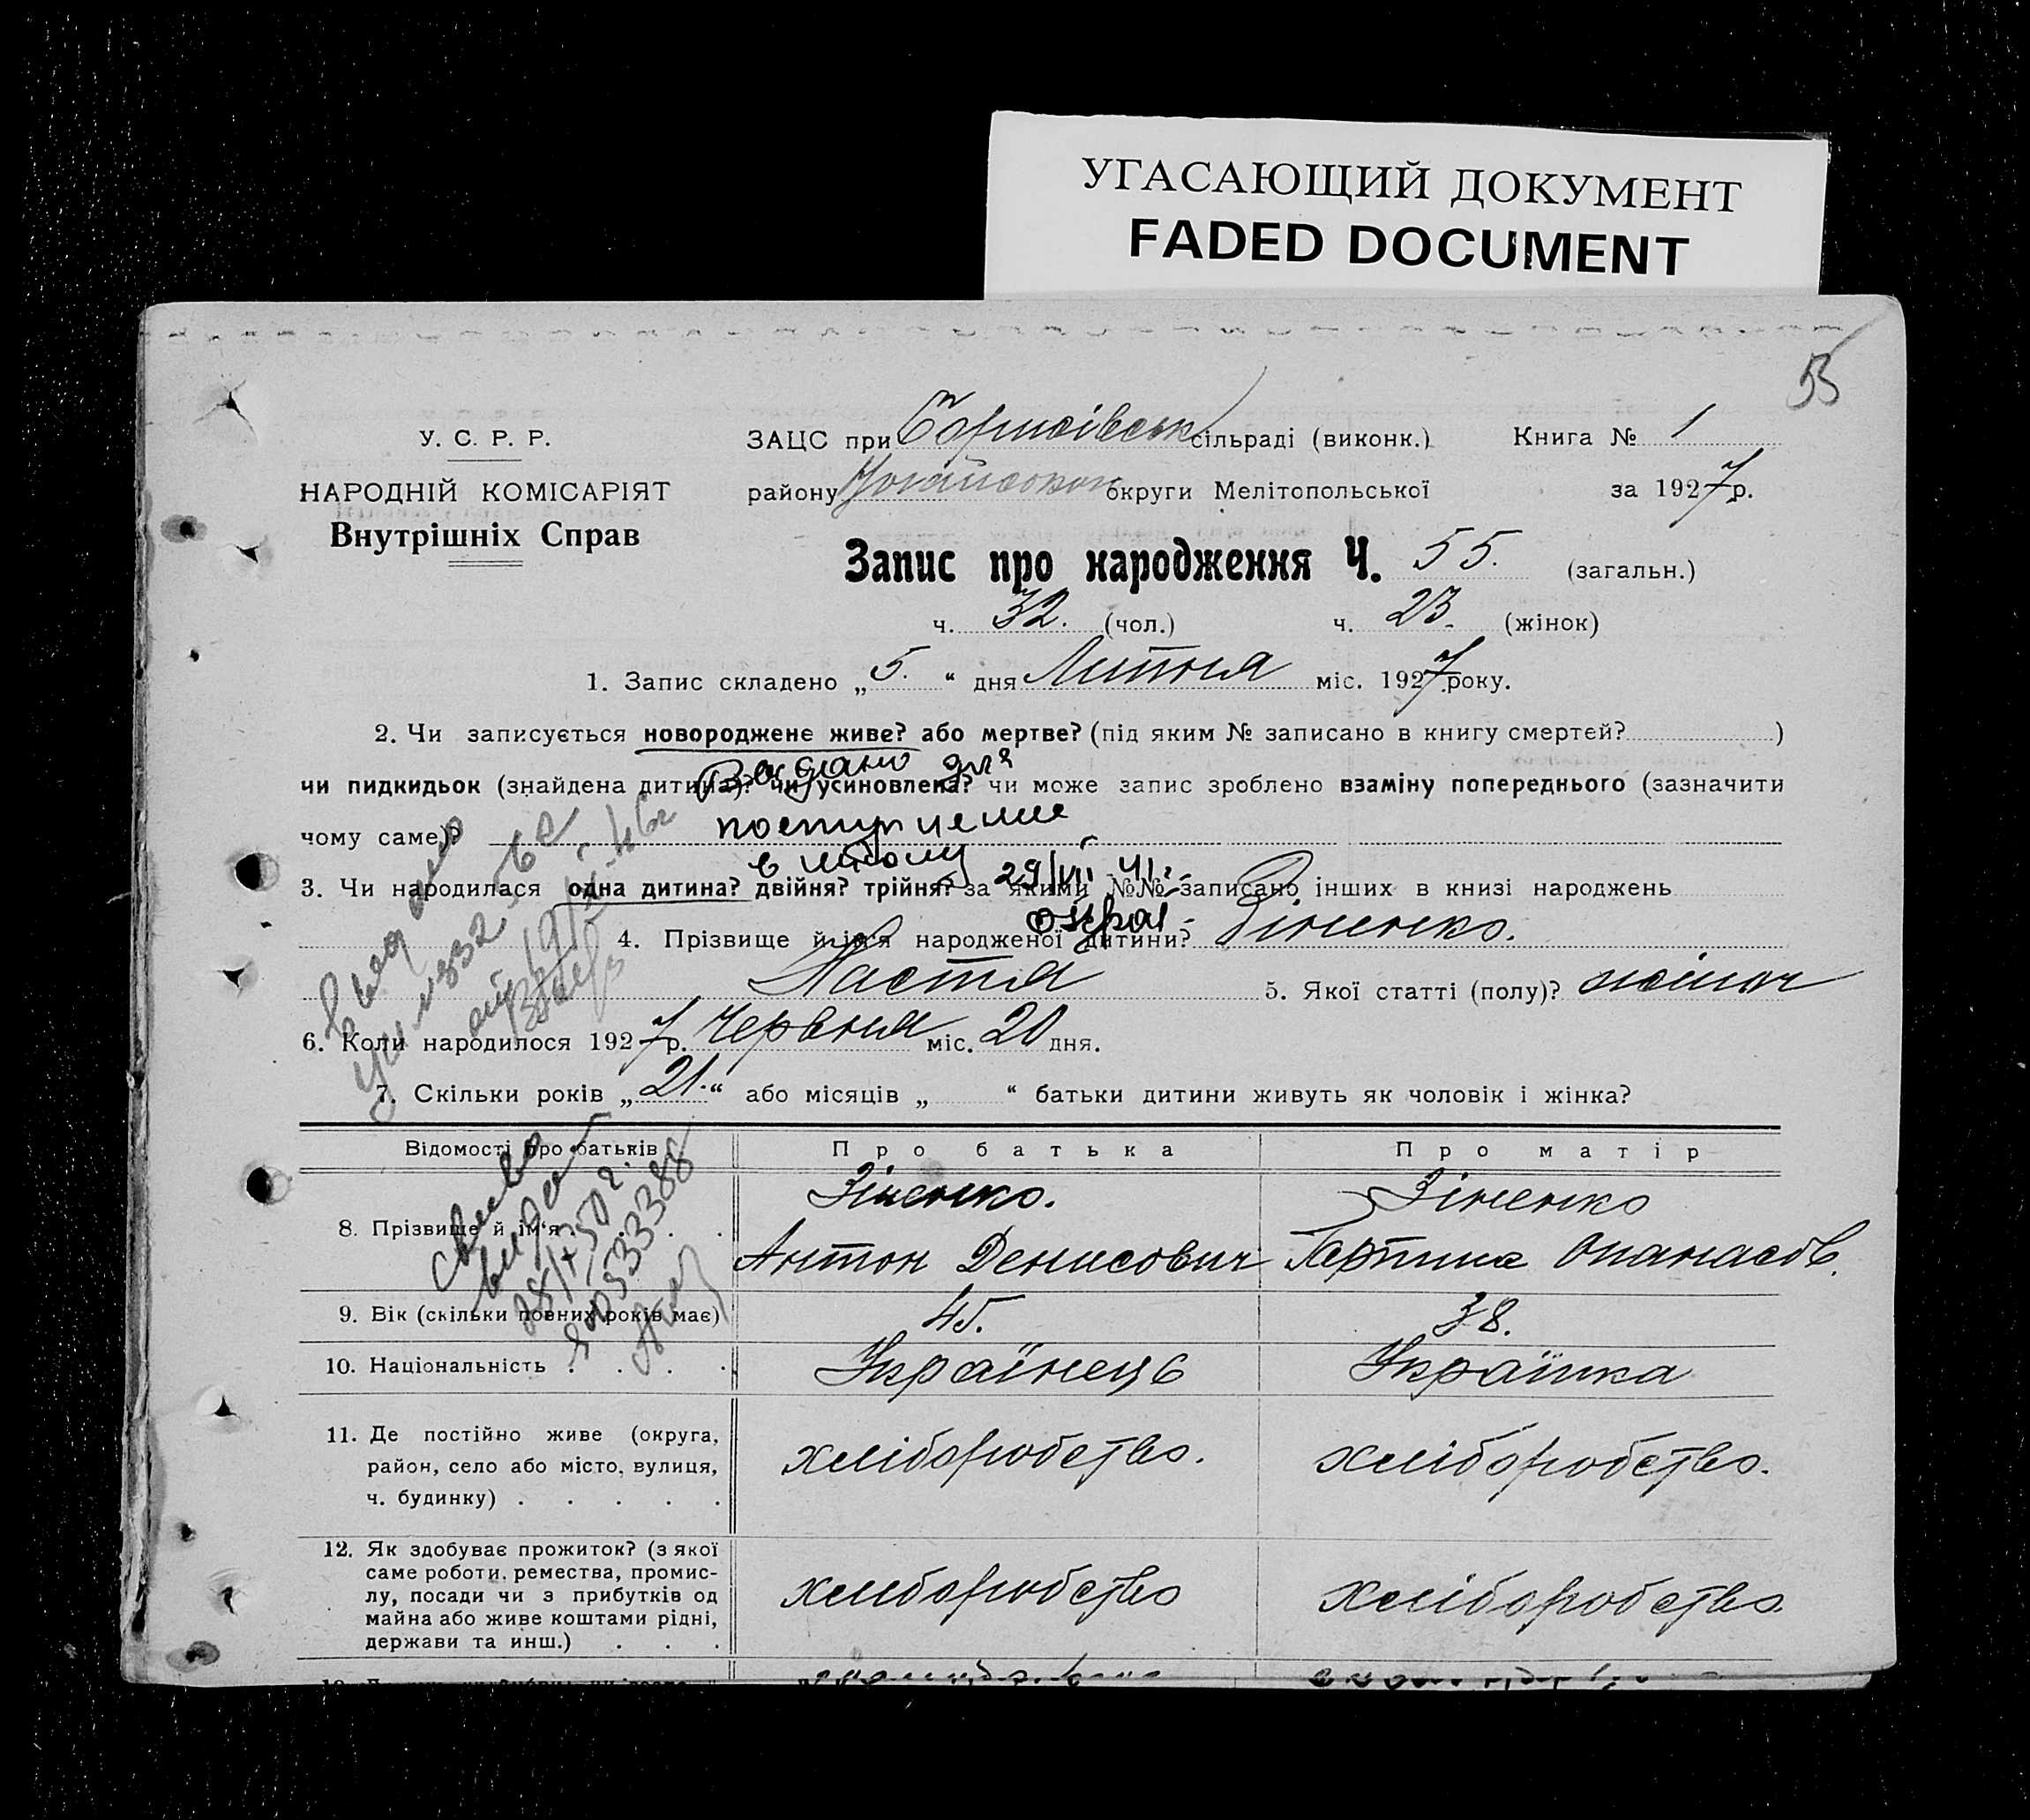 УГАСАЮЩИЙ ДОКУМЕНТ
FADED DOCUMENT
55
У. С. Р. Р.
НАРОДНІЙ КОМІСАРІЯТ
Внутрішніх Справ
ЗАЦС при Борисівськ сільраді (виконк.)
Книга № 1
району округи Мелітопольської
за 1927 р.
Запис про народження Ч. 55. (загальн.)
ч. 32. (чол.) ч. 23. (жінок)
1. Запис складено „5.“ дня Липня міс. 1927 року.
2. Чи записується новороджене живе? або мертве? (під яким № записано в книгу смертей? )
Видано для
чи пидкидьок (знайдена дитина)? чи усиновлена? чи може запис зроблено взаміну попереднього (зазначити
чому саме)?
поступления
в школу 29/VII 41.
3. Чи народилася одна дитина? двійня? трійня? за якими №№ записано інших в книзі народжень
4. Прізвище й ім'я народженої дитини? Зіненко.
Настя 5. Якої статті (полу)? жіноч
6. Коли народилося 1927 р. Червня міс. 20 дня.
7. Скільки років „21.“ або місяців „ “ батьки дитини живуть як чоловік і жінка?
Відомості про батьків
Про батька
Про матір
8. Прізвище й ім'я . . .
Зіненко.
Антон Денисович
Зіненко
Опанасов.
9. Вік (скільки повних років має)
45.
38.
10. Національність . . . .
Українець
Українка
11. Де постійно живе (округа,
район, село або місто, вулиця,
ч. будинку) . . . . .
хліборобство.
хліборобство.
12. Як здобуває прожиток? (з якої
саме роботи, ремества, промис-
лу, посади чи з прибутків од
майна або живе коштами рідні,
держави та инш.) . . .
хліборобство
хліборобство.